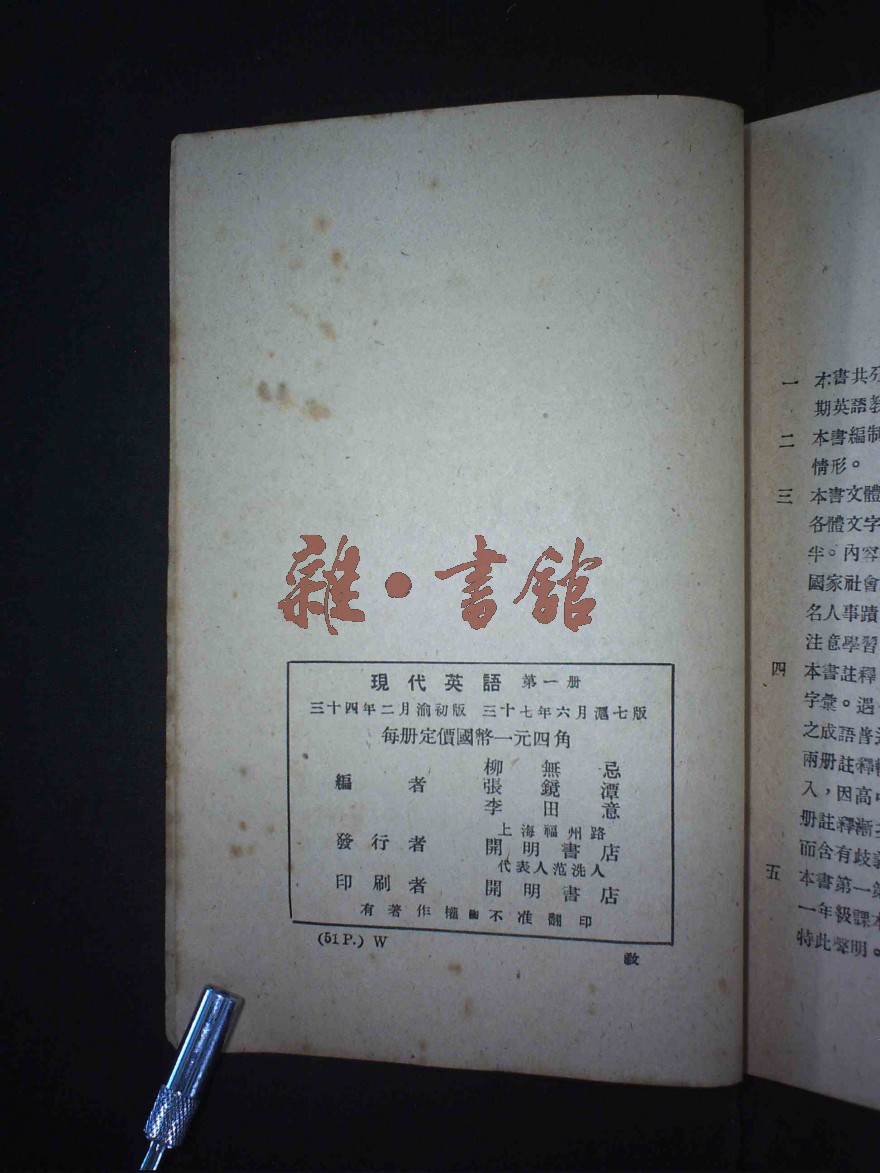 雜·書館
現代英語 第一册
三十四年二月渝初版 三十七年六月滬七版
每册定價國幣一元四角
編者
柳無忌
張鏡潭
李田意
發行者
上海福州路
開明書店
代表人范洗人
印刷者 開明書店
有著作權不准翻印
(51 P.) W
一 本書共分
期英語教
二 本書編制
情形。
三 本書文體
各體文字
半。內容
國家社會
名人事蹟
注意學習
四 本書註釋
字彙。遇
之成語普通
兩册註釋
入，因高中
册註釋漸
而含有歧義
五 本書第一第
一年級課本
特此聲明。